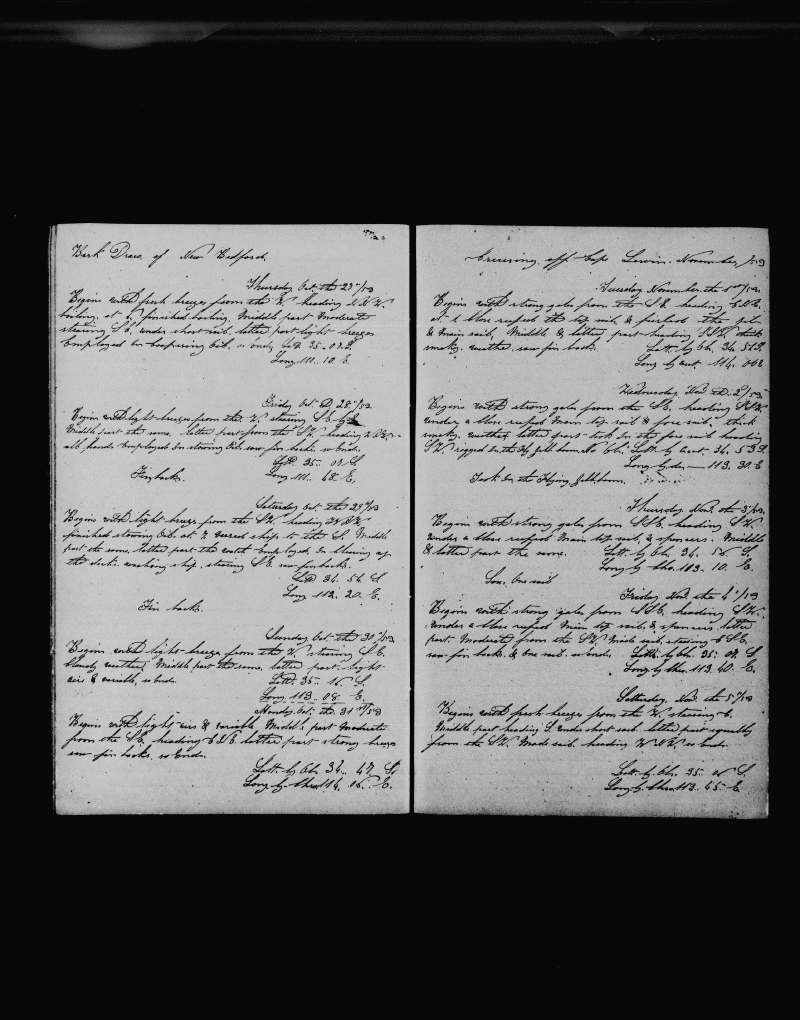 Bark Draco of New Bedford.
Thursday Oct. the 27th/59
Begins with fresh breezes from the W. heading N.N.W
boiling, at finished boiling, Middle part Moderate
stearing S.E, under short sail. latter part light breezes
Employed in Coopering Oil. so ends, Latt 35.. 07 S.
Long 111.. 10. E.
Friday Oct. 28th/59
Begins with light breezes from the W. stearing S.E. by E
Middle part the same. latter part from the S.W. heading
all hands Employed in stowing Oil. saw fin backs. so ends,
Latt. 35.. 07 S.
Finbacks. Long 111.. 48 E.
Saturday Oct. the 29th/59
Begins with light breezes from the SW. heading
finished stowing Oil. at wared ship to the S. Middle
part the same, latter part the watch Employed in cleaning up
the decks. washing ship. stearing S.E. saw finbacks.
Latt 34. 54 S
Long 112. 20. E.
Fin backs.
Sunday Oct. the 30th/59
Begins with light breeze from the W, stearing S.E.
Cloudy weather, Middle part the same, latter part. light
airs & variable, so ends.
Latt. 35.. 16 S.
Long. 113.. 08 E.
Monday Oct. the 31st/59
Begins with light airs & variable Middle part moderate
from the S.E, heading E.N.E. latter part strong breezes
saw fin backs. so Ends,
Latt. by Ob. 34.. 47 S.
Long. by Chro. 114. 06. E.
Cruising off Cape Lewin. November/59
Tuesday November the 1st/59.
Begins with strong gales from the S.E. heading E.N.E.
at close reefed the top sails & furled the jib
& main sail, Middle & latter part heading S.S.W. thick
smoky weather, saw fin backs. Latt. by Ob. 34. 51 S.
Long by 114. 06 E
Wednesday Nov. 2/59
Begins with strong gales from the S.E. heading S.S.W
under a close reefed Main top sail & fore sail, thick
smoky weather, latter part took in the fore sail heading
S.W. rigged in the Fly jibb boom, No Ob. Latt. by 34. 53 S.
Long by do. — 113. 30 E
Took in the Flying jibb boom.
Thursday Nov. the 3/59.
Begins with strong gales from S.S.E. heading S.W.
under a close reefed Main top sail, & spencers. Middle
& latter part the same. Latt. by Ob. 34. 56 S.
Long by Chro. 113.. 10. E.
Saw. One sail
Friday Nov. the 4th/59
Begins with strong gales from S.S.E. heading S.W.
under a close reefed Main top sail, & spencers latter
part. Moderate from the S.W. Made sail. stearing E.S.E.
saw fin backs, & One sail. so ends. Latt. by Ob. 35. 07. S
Long by Chro. 113. 40. E.
Satturday, Nov. the 5th/59
Begins with fresh breezes from the W. stearing E.
Middle part heading S. under short sail. latter part squally
from the S.W. Made sail. heading so ends.
Latt. by Ob. 35. 06 S.
Long. by Chro. 113.. 45. E.